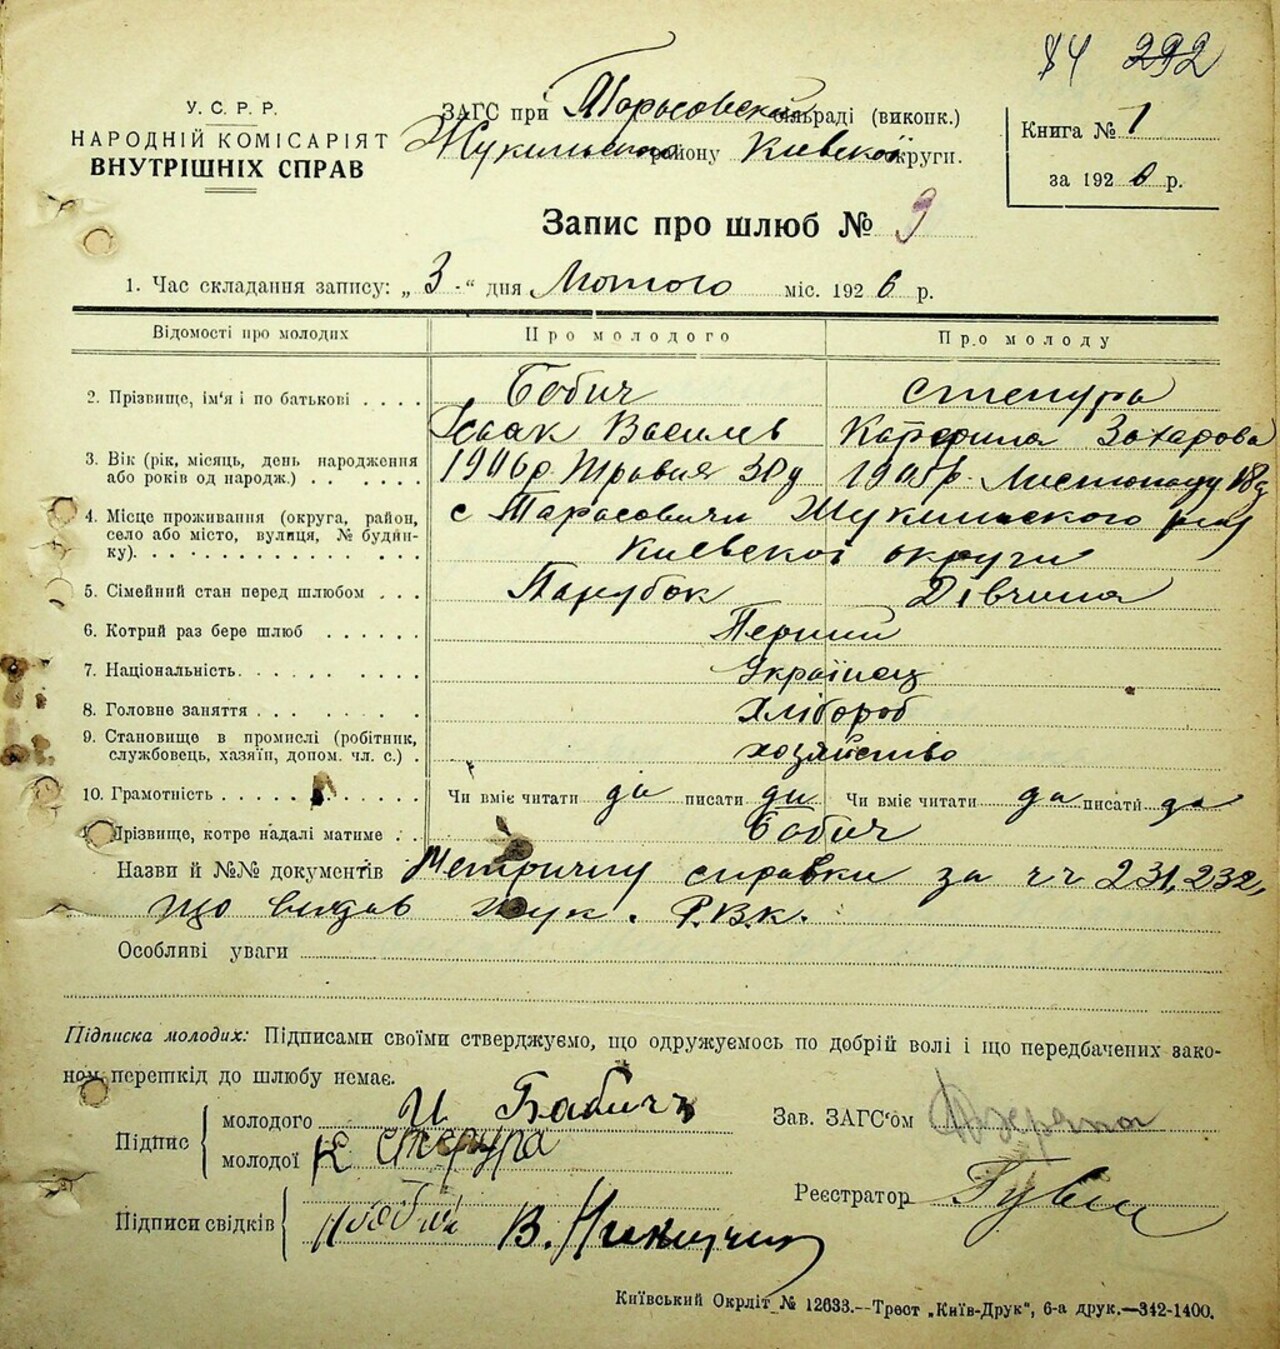 84 292
У. С. Р. Р.
НАРОДНІЙ КОМІСАРІЯТ
ВНУТРІШНІХ СПРАВ
ЗАГС при Тарасовской сільраді (виконк.)
району Киевской округи.
Книга № 1
за 1926 р.
Запис про шлюб № 9
1. Час складання запису: „ 3 “ дня Лютого міс. 1926 р.
Відомості про молодих Про молодого Про молоду
2. Прізвище, ім‘я і по батькові . . . . Бобич Степура
Ісаак Василев Катерина Захарова
3. Вік (рік, місяць, день народження 1906 р. Травня 30 д 1905 р. Листопаду 18 д
або років од народж.) . . . . . . .
4. Місце проживання (округа, район, с Тарасовичи Жукинского району
село або місто, вулиця, № будин-
ку). . . . . . . . . . . . . . Киевскоі округи
5. Сімейний стан перед шлюбом . . . Парубок Дівчина
6. Котрий раз бере шлюб . . . . . . Перший
7. Національність. . . . . . . . . . Українец
8. Головне заняття . . . . . . . . Хлібороб
9. Становище в промислі (робітник,
службовець, хазяїн, допом. чл. с.) . хозяйство
10. Грамотність . . . . . . . . . . Чи вміє читати да писати да Чи вміє читати да писати да
Прізвище, котре надалі матиме . . Бобич
Назви й №№ документів Метричну справки за чч 231, 232,
що видав Жук. Р.В.К.
Особливі уваги
Підписка молодих: Підписами своїми стверджуємо, що одружуємось по добрій волі і що передбачених зако-
ном перешкід до шлюбу немає.
Підпис
молодого И Бабичъ
молодої К Степура
Зав. ЗАГС‘ом
Реєстратор
Підписи свідків
В.
Київський Окрліт № 12633.--Трест „Київ-Друк“, 6-а друк.—342-1400.